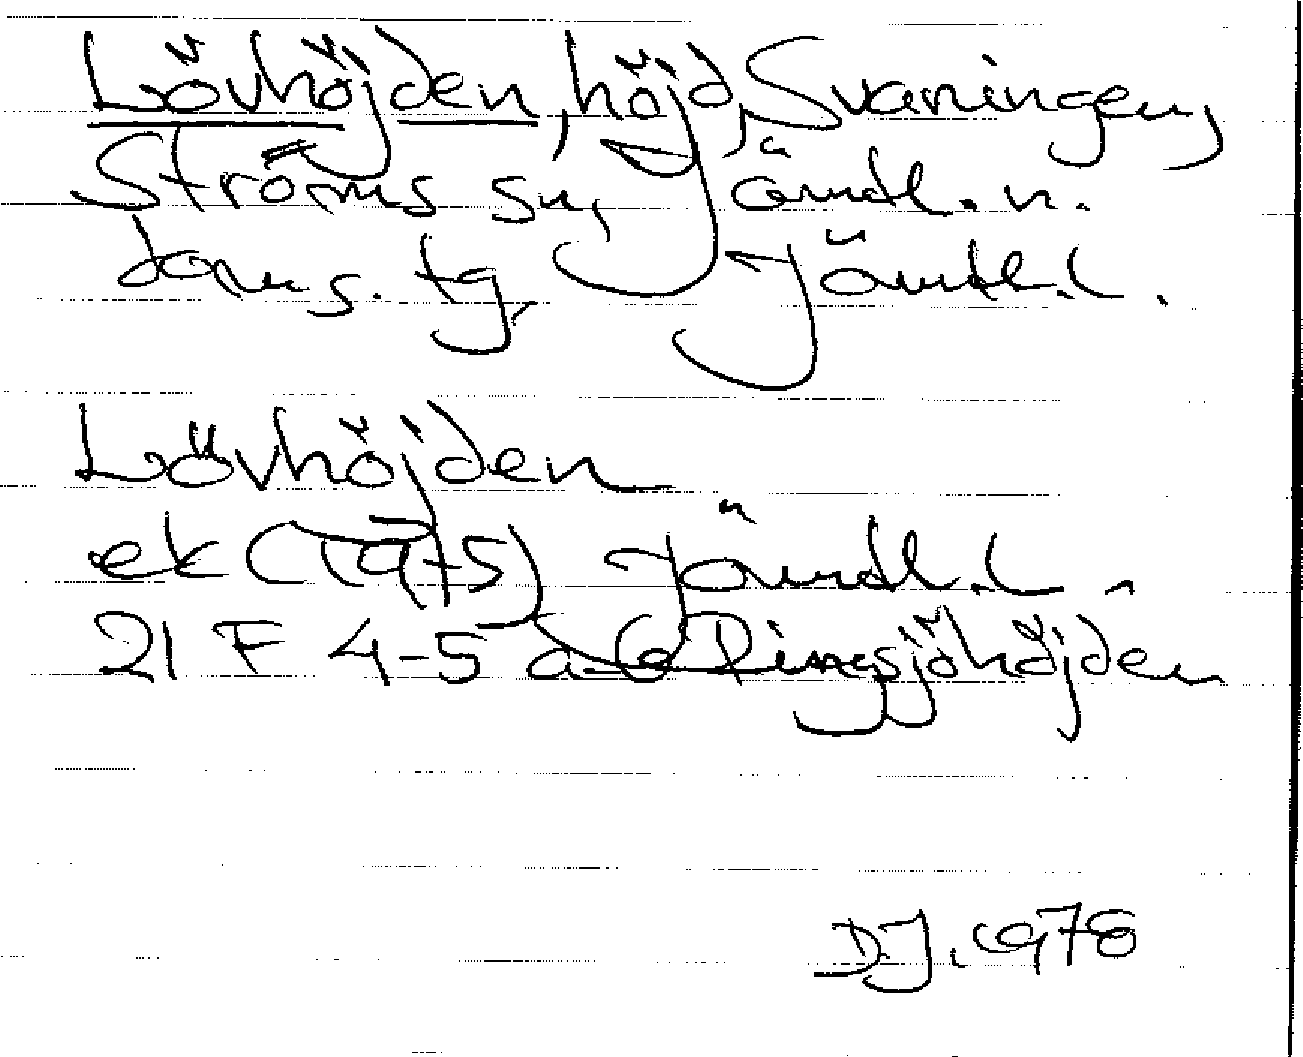 Lövhöjden, höjd, Svaningen,
Ströms sn, Jämtl. n.
doms. tg, Jämtl. l.
Lövhöjden
ek (1975) Jämtl. l.
21 F 4-5 a-b Ringsjöhöjden
D.J. 1978